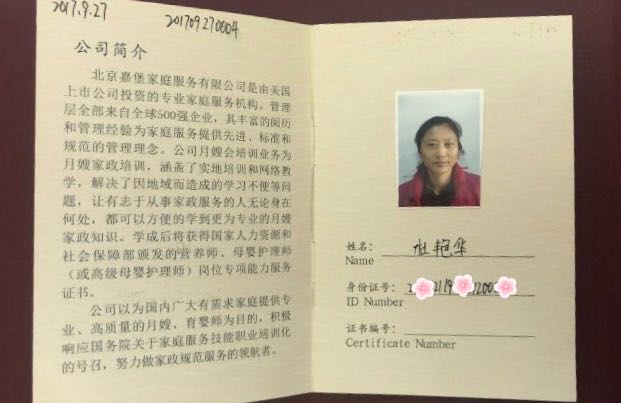 2017.9.27
201709270004
公司简介
北京嘉堡家庭服务有限公司是由美国
上市公司投资的专业家庭服务机构。管理
层全部来自全球500强企业，其丰富的阅历
和管理经验为家庭服务提供先进、标准和
规范的管理理念。公司月嫂会培训业务为
月嫂家政培训，涵盖了实地培训和网络教
学，解决了因地域而造成的学习不便等问
题，让有志于从事家政服务的人无论身在
何处，都可以方便的学到更为专业的月嫂
家政知识。学成后将获得国家人力资源和
社会保障部颁发的营养师、母婴护理师
（或高级母婴护理师）岗位专项能力服务
证书。
公司以为国内广大有需求家庭提供专
业、高质量的月嫂、育婴师为目的，积极
响应国务院关于家庭服务技能职业培训化
的号召，努力做家政规范服务的领航者。
姓名： 杜艳华
Name
身份证号：
ID Number
证书编号：
Certificate Number